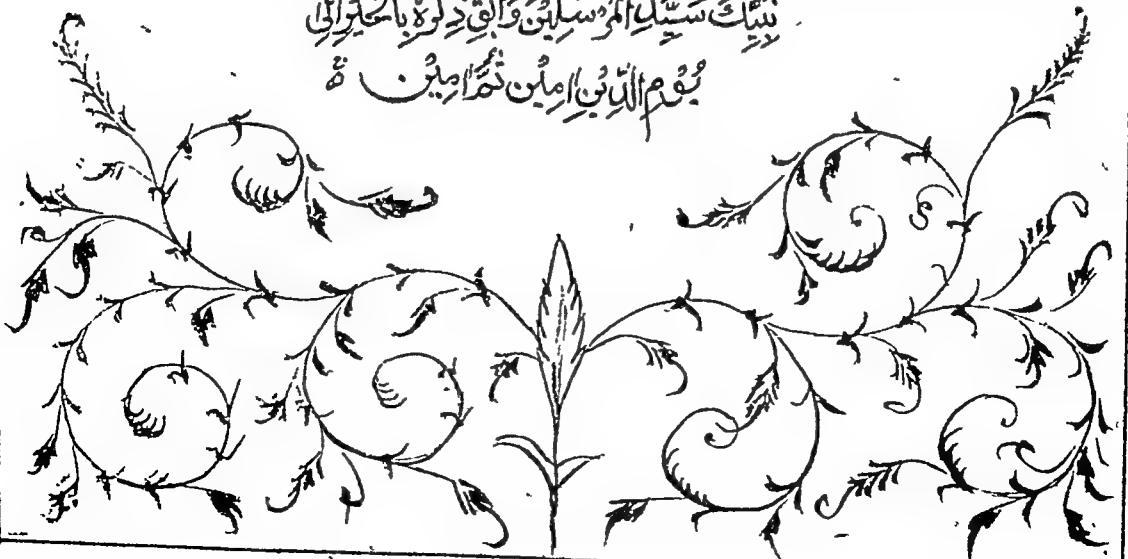 نَبِيِّكَ سَيِّدِ الْمُرْسَلِيْنَ وَابْقِ ذِكْرَهٗ بِالْخَيْرِ اِلٰى
يَوْمِ الدِّيْنِ اٰمِيْن ثُمَّ اٰمِيْن